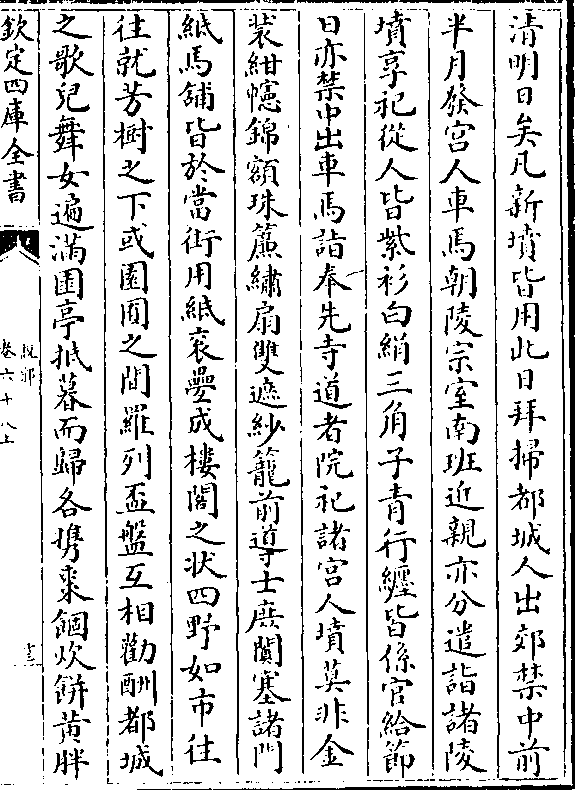 清明日矣凡新墳皆用此日拜掃都城人出郊禁中前
半月發宮人車馬朝陵宗室南班近親亦分遣詣諸陵
墳享祀從人皆紫衫白絹三角子青行纏皆係官給節
日亦禁中出車馬詣奉先寺道者院祀諸宮人墳莫非金
裝紺幰錦額珠簾繡扇雙遮紗籠前導士庶闐塞諸門
紙馬舖皆於當街用紙衮疊成樓閣之狀四野如市往
往就芳樹之下或園囿之間羅列盃盤互相勸酬都城
之歌兒舞女遍滿園亭抵暮而歸各攜棗䭅炊餅黃胖
欽定四庫全書
說郛
卷六十八上